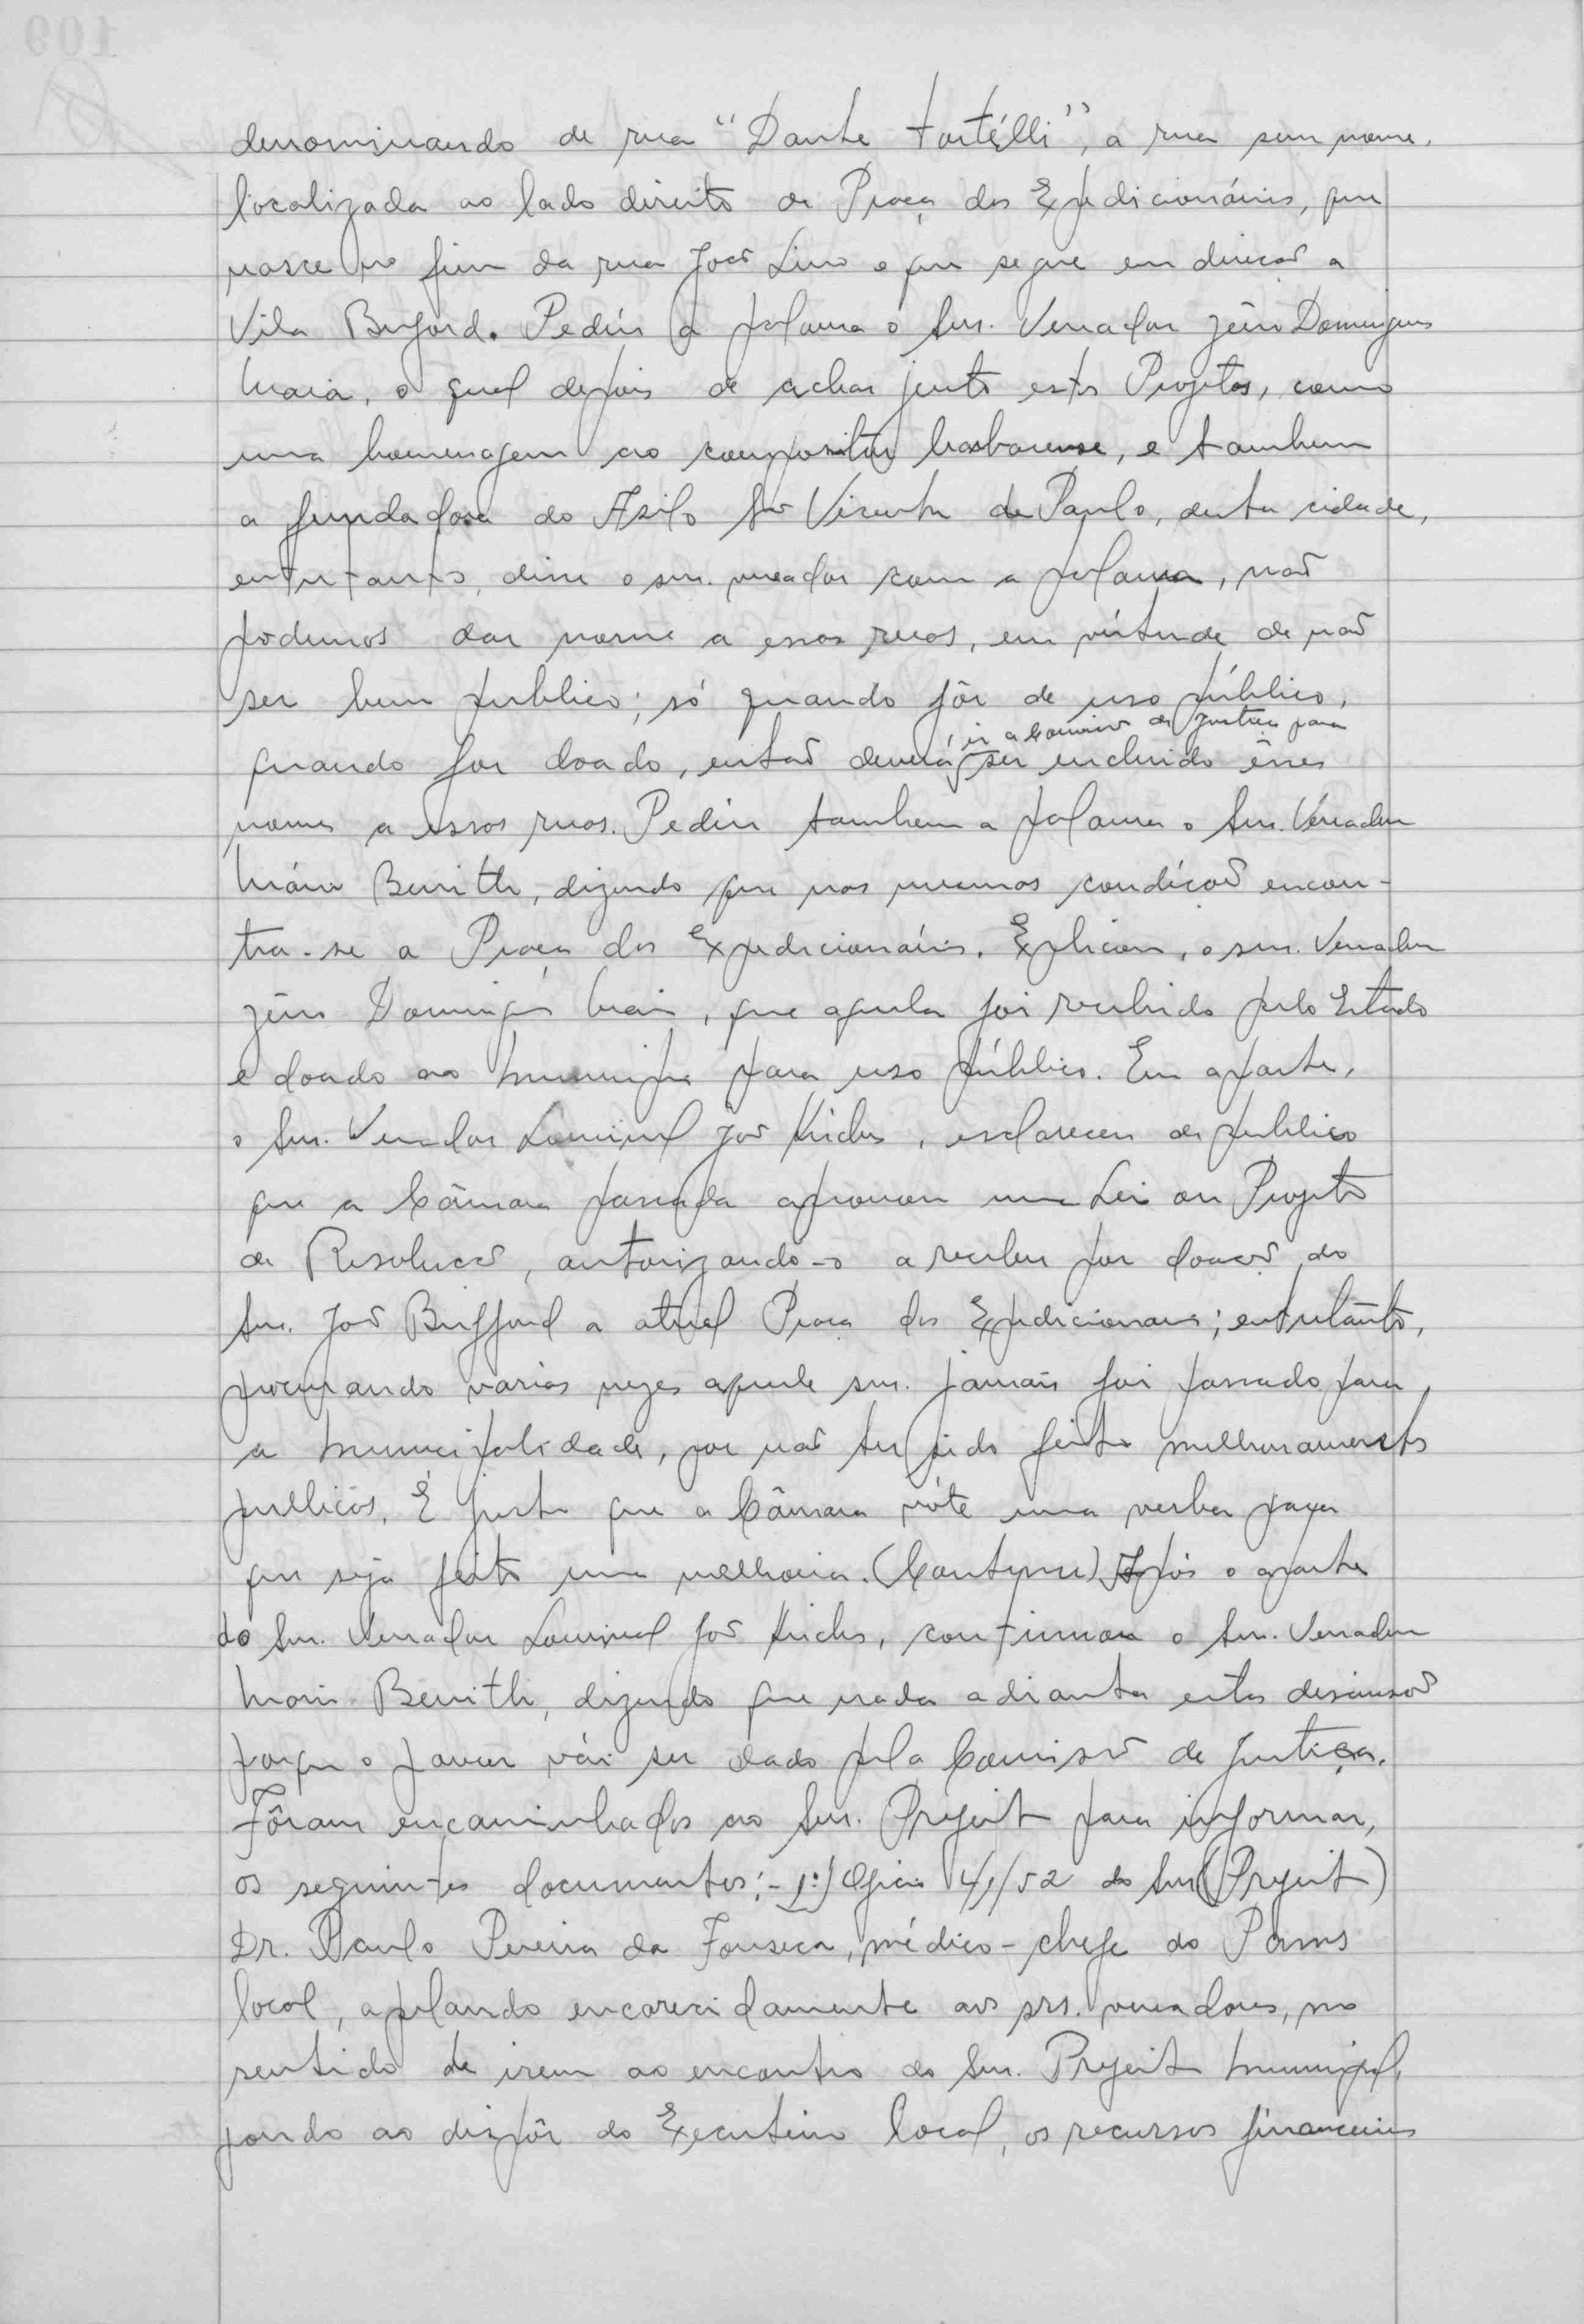 denominando de rua "Dante Fortélli", a rua sem nome,
localizada ao lado direito da Praça dos Expedicionários, que
nasce no fim da rua João Lino e que segue em direção a
Vila Buford. Pediu a palavra o Snr. Vereador Zêno Domingues
Maia, o qual depois de achar justo estes Projetos, como
uma homenagem ao compositor barbarense, e tambem
a fundadora do Asilo São Vicente de Paulo, desta cidade,
entretanto, disse o snr. vereador com a palavra, não
podemos dar nome a essas ruas, em virtude de não
ser bem publico; só quando fôr de uso público,
quando for doado, então deverá, ir a Comissão de Justiça para ser incluido êsses
nomes a essas ruas. Pediu tambem a palavra o Snr. Vereador
Mário Benith, dizendo que nas mesmas condições encon-
tra-se a Praça dos Expedicionários. Explicou, o snr. Vereador
Zêno Domingues Maia, que aquela foi recebida pelo Estado
e doado ao Municipio para uso público. Em aparte,
o Snr. Vereador Lourival José, esclareceu de publico
que a Câmara passada aprovou uma Lei ou Projeto
de Resolução, autorizando-o a receber por doação do
Snr. João Bufford a atual Praça dos Expedicionarios; entretânto,
procurando varias vezes aquele snr. jamais foi passado para
a Municipalidade, por não ter sido feito melhoramentos
publicos. É justo que a Câmara vóte uma verba para
que seja feito uma melhoria. Após o aparte
do Snr. Vereador Lourival José, continuou o Snr. Vereador
Mario Benith, dizendo que nada adianta estas discussões
porque o parecer vái ser dado pela Comissão de Justiça.
Fôram encaminhados ao Snr. Prefeito para informar,
os seguintes documentos:- 1º) Oficio 41/52 do Snr (Prefeito)
Dr. Paulo Pereira da Fonseca, médico-chefe do Pams
local, apelando encarecidamente aos srs. vereadores, no
sentido de irem ao encontro do Snr. Prefeito Municipal,
pondo ao dispôr do Executivo local, os recursos financeiros